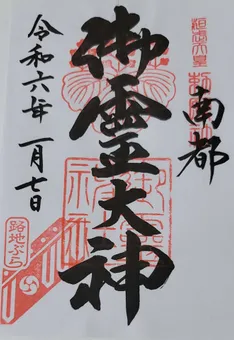 南都
御霊大神
令和六年一月七日
路地ぶら